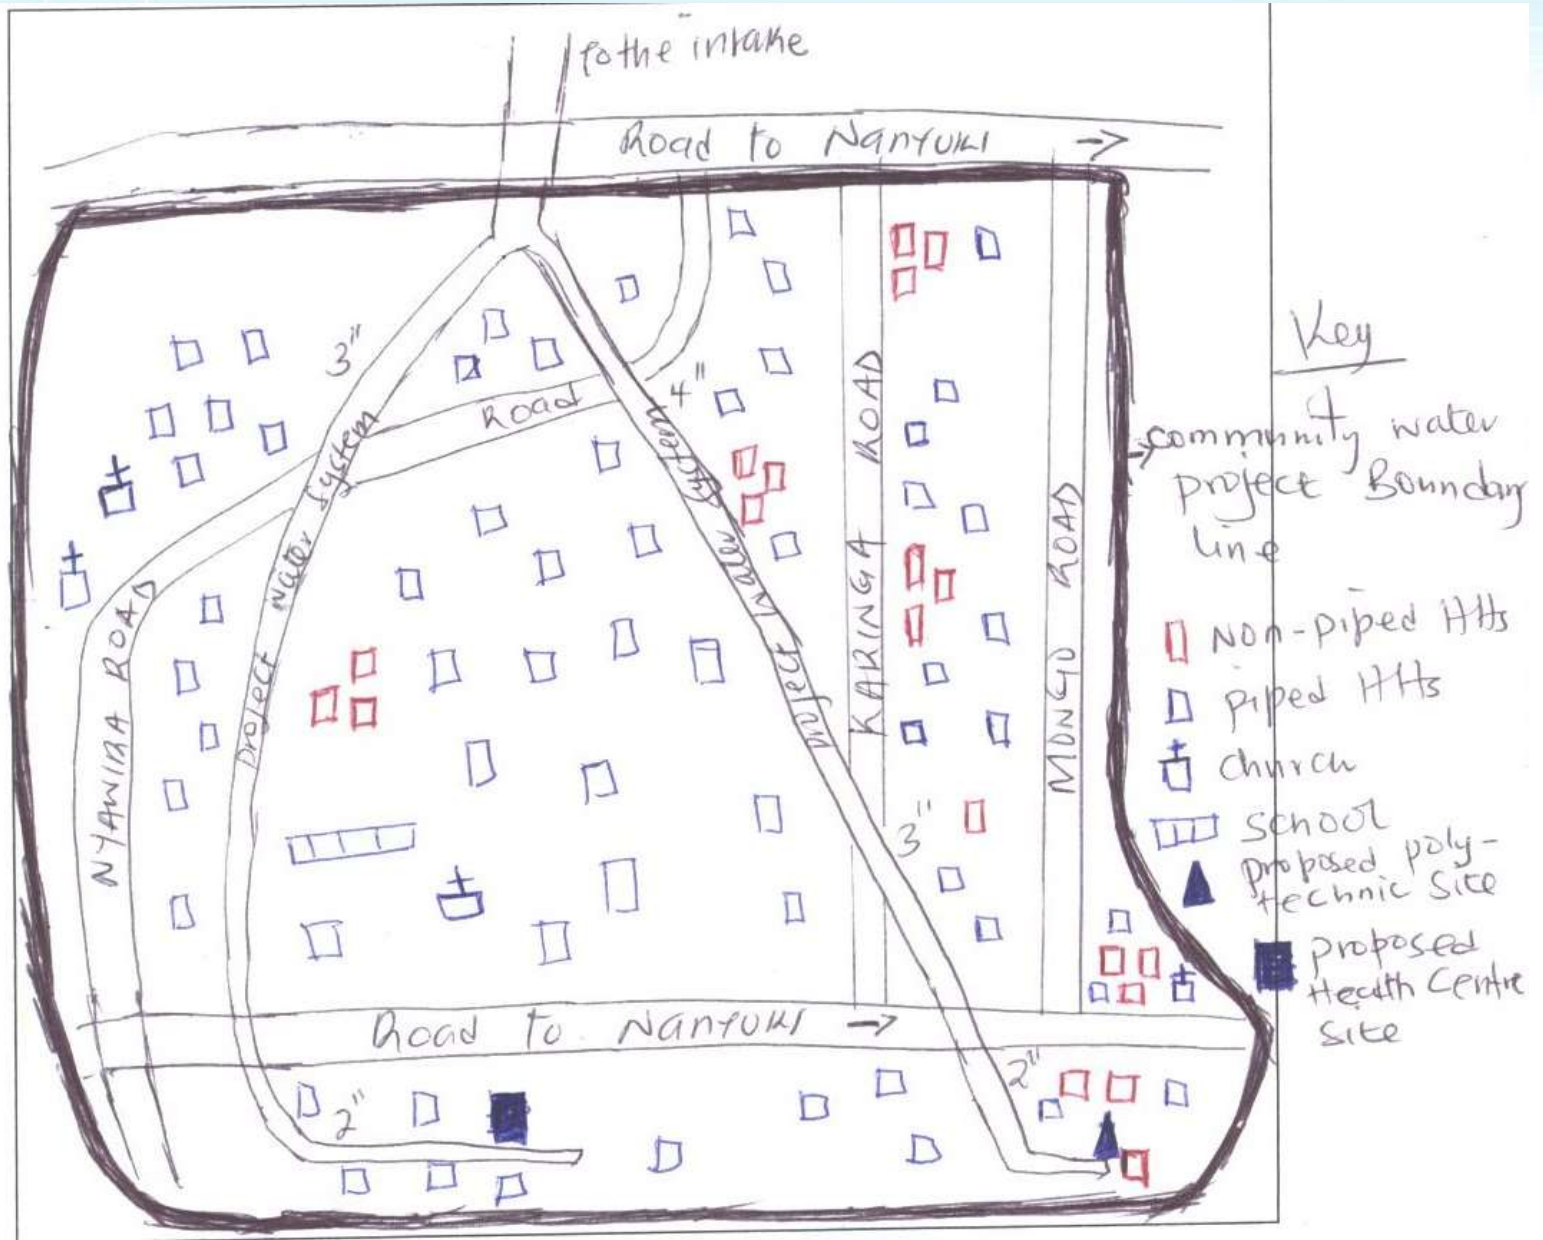 to the intake
Road to Nanyuki →
3"
4"
Road
Project water system
Project water system
NYAWIRA ROAD
KARINGA ROAD
MONGO ROAD
3"
Road to Nanyuki →
2"
2"
Key
community water
project Boundary
line
Non-piped HHs
piped HHs
church
school
proposed poly-
technic site
proposed
Health Centre
site